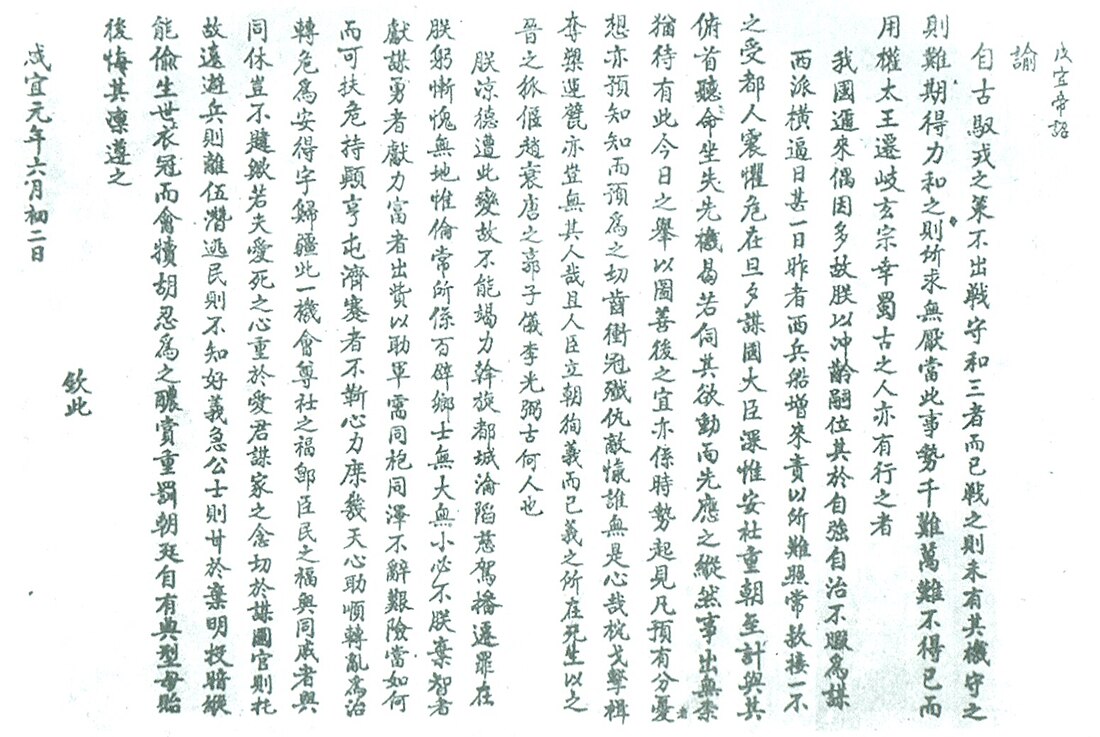 咸宜帝詔
諭
自古馭戎之策不出戰守和三者而已戰之則未有其機守之
則難期得力和之則所求無厭當此事勢千難萬難不得已而
用權太王遷岐玄宗幸蜀古之人亦有行之者
我國邇來偶因多故朕以冲齡嗣位其於自強自治不暇爲謀
西派橫逼日甚一日昨者西兵船增來責以所難照常款接一不
之受都人震懼危在旦夕謀國大臣深惟安社重朝至計與其
俯首聽命坐失先機曷若伺其欲動而先應之縱然事出無柰
猶待有此今日之舉以圖善後之宜亦係時勢起見凡預有分憂者
想亦預知知而預爲之切齒衝冠殲仇敵愾誰無是心哉枕戈擊楫
奪槊運甓亦豈無其人哉且人臣立朝徇義而已義之所在死生以之
晉之狐偃趙衰唐之郭子儀李光弼古何人也
朕涼德遭此變故不能竭力幹旋都城淪陷慈駕播遷罪在
朕躬慚愧無地惟倫常所係百辟鄉士無大無小必不朕棄智者
獻謀勇者獻力富者出貲以助軍需同袍同澤不辭艱險當如何
而可扶危持顛亨屯濟蹇者不靳心力庶幾天心助順轉亂爲治
轉危爲安得字歸疆此一機會尊社之福卽臣民之福與同戚者與
同休豈不韙歟若夫愛死之心重於愛君謀家之念切於謀國官則托
故遠遊兵則離伍潛逃民則不知好義急公士則甘於棄明投暗縱
能偸生世衣冠而會犢胡忍爲之醲賞重罰朝廷自有典型毋貽
後悔其凜遵之
欽此
咸宜元年六月初二日